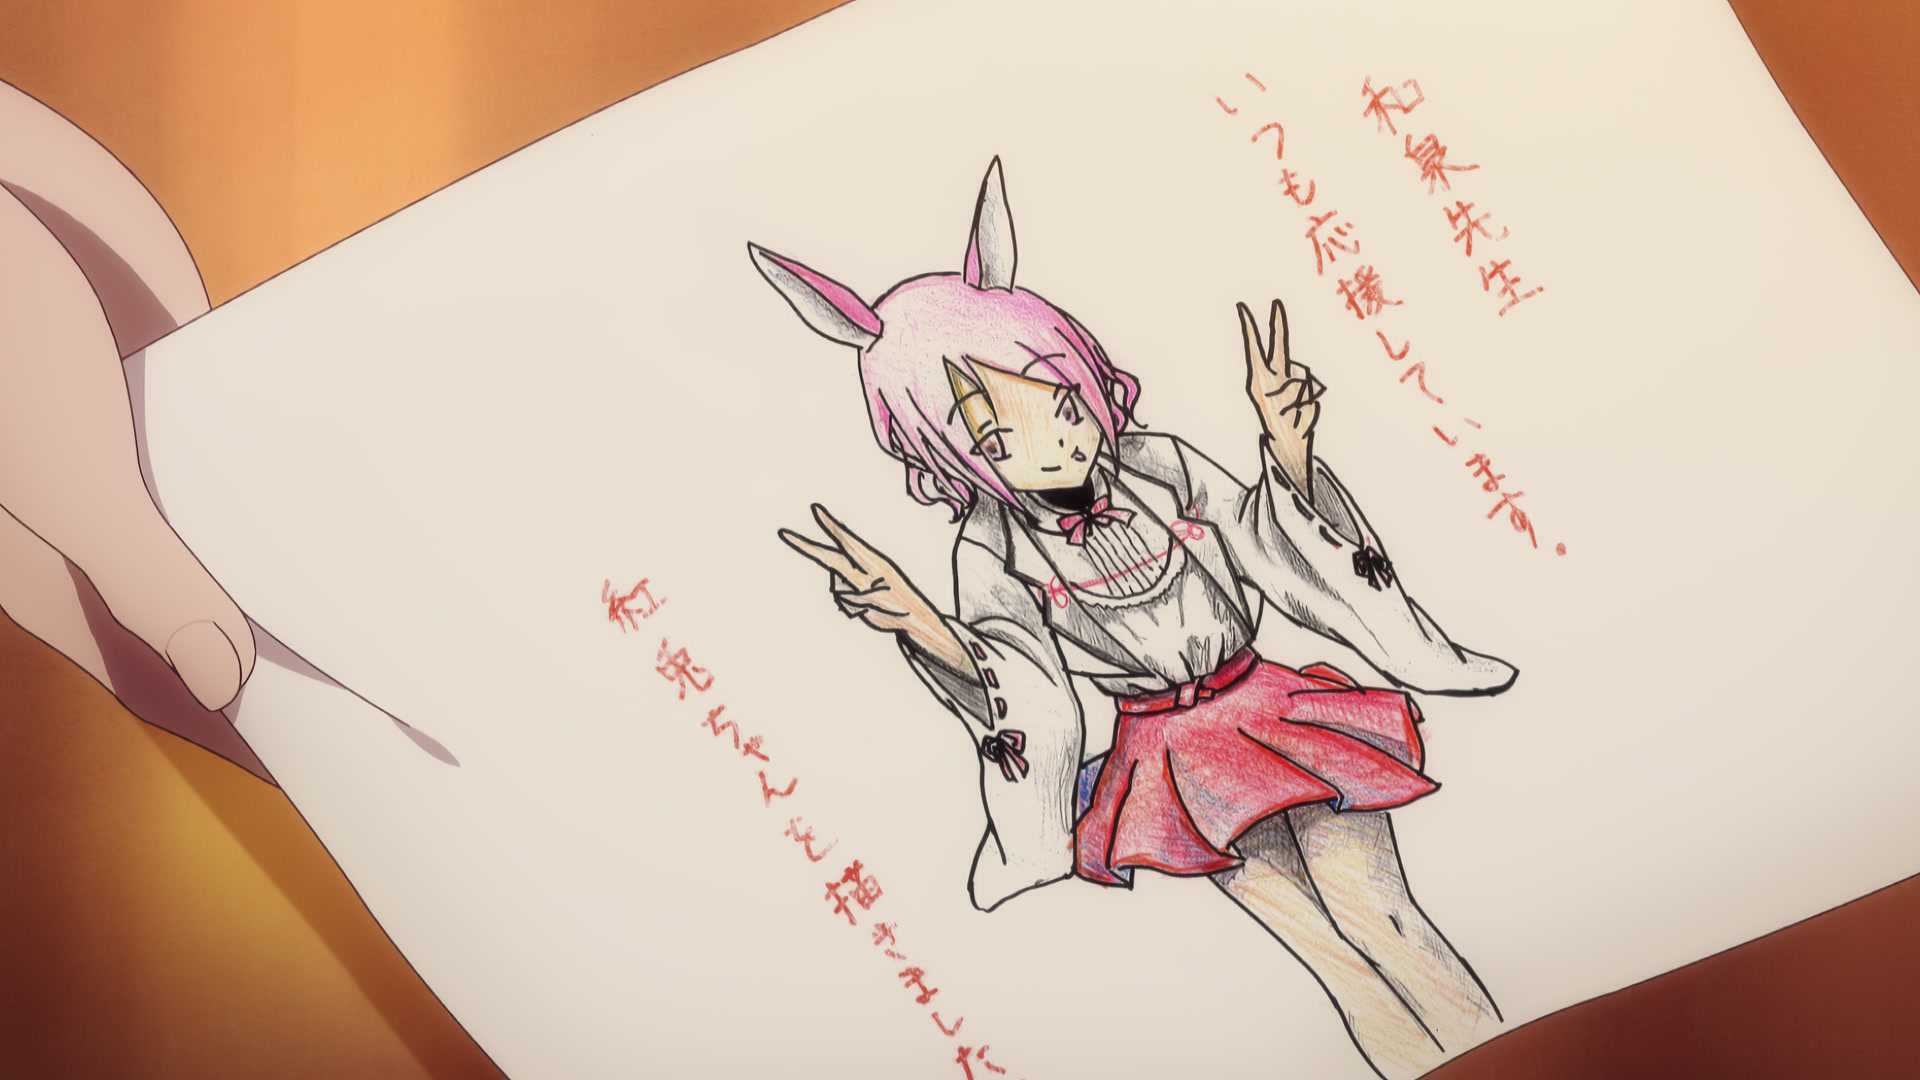 和泉先生
いつも応援しています。
紅兎ちゃんを描きました